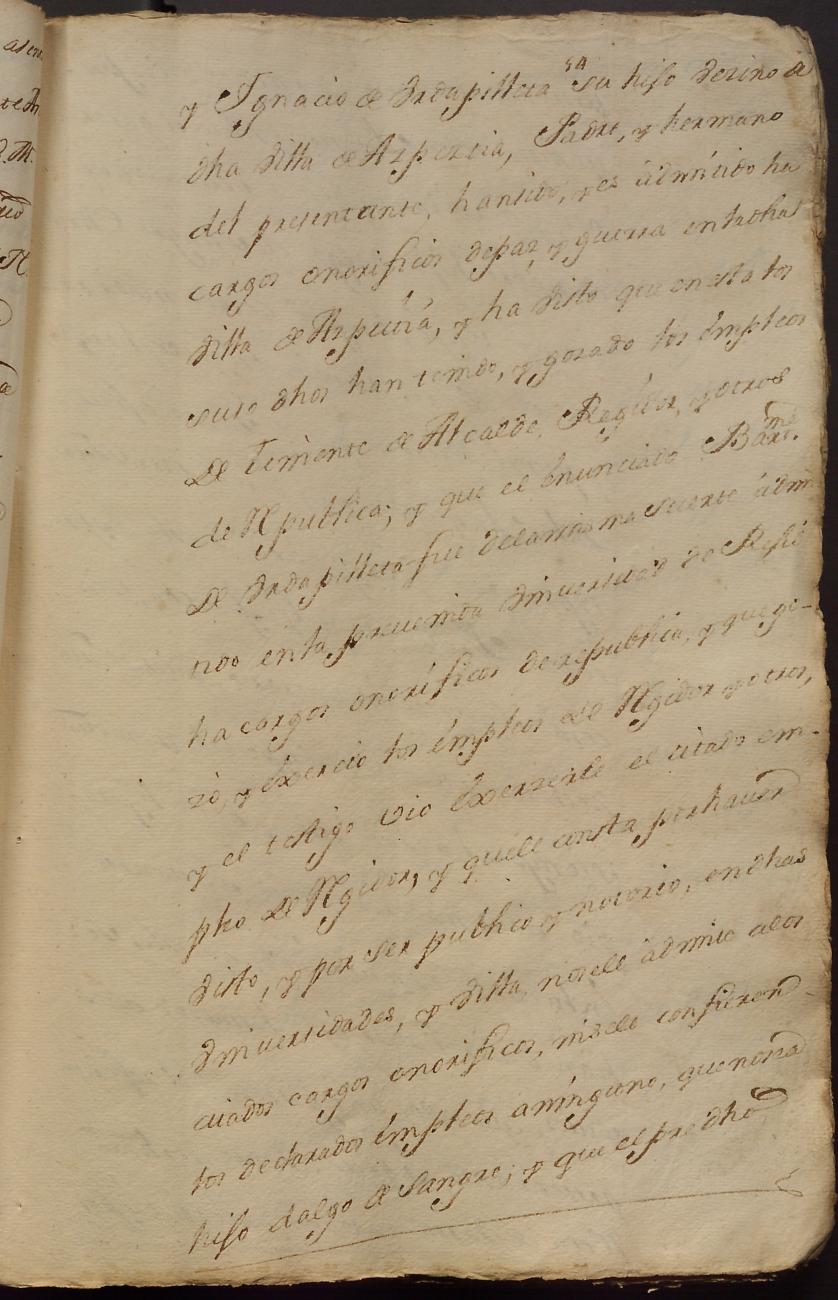 54
y Ygnacio de Vrdapilleta su hijo Vezino de
dha Villa de Azpeitia, Padre, y hermano
del presentante, han sido, y es admitido ha
cargos onorificos de paz, y guerra en la dha
Villa de Azpeitia, y ha visto que en esta los
suso dhos han tenido, y gozado los émpleos
de Teniente de Alcalde, Regidor, y otros
de Rpublica; y que el énunciado Barme
de Vrdapilleta fue de la misma suerte admi
tido en la prevenida Vniversidad de Rejil
ha cargos onorificos de republica, y que go-
zó, y éxercio los émpleos de Rgidor y otros,
y el testigo vio éxercerle el citado em-
pleo de Rgidor, y que le consta por haver
visto, y por ser publico y notorio, en dhas
Vniversidades, y Villa, no se le admite a los
citados cargos onorificos, ni se le confieren
los declarados émpleos a ninguno, que no sea
hijo dalgo de Sangre; y que el pre dho